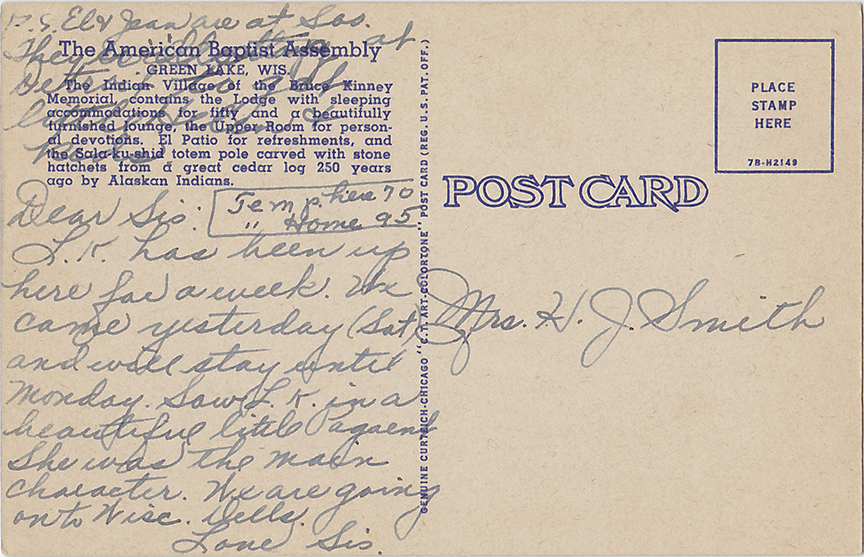 P.S. El & Jean are at Soo.
They
at
The American Baptist Assembly
GREEN LAKE, WIS.
The Indian Village of the Bruce Kinney
Memorial contains the Lodge with sleeping
accommodations for fifty and a beautifully
furnished lounge, the Upper Room for person-
al devotions, El Patio for refreshments, and
the Sala-ku-shid totem pole carved with stone
hatchets from a great cedar log 250 years
ago by Alaskan Indians.
Dear Sis.
Temp. here 70
" Home 95
L.K. has been up
here for a week. We
came yesterday (Sat)
and will stay until
Monday. Saw L.K. in a
beautiful little Pagaent
She was the main
character. We are going
on to Wisc. Dells.
Love Sis.
GENUINE CURTEICH-CHICAGO "C.T. ART-COLORTONE" POST CARD (REG. U.S. PAT. OFF.)
POST CARD
PLACE
STAMP
HERE
7B-H2149
Mrs. H. J. Smith